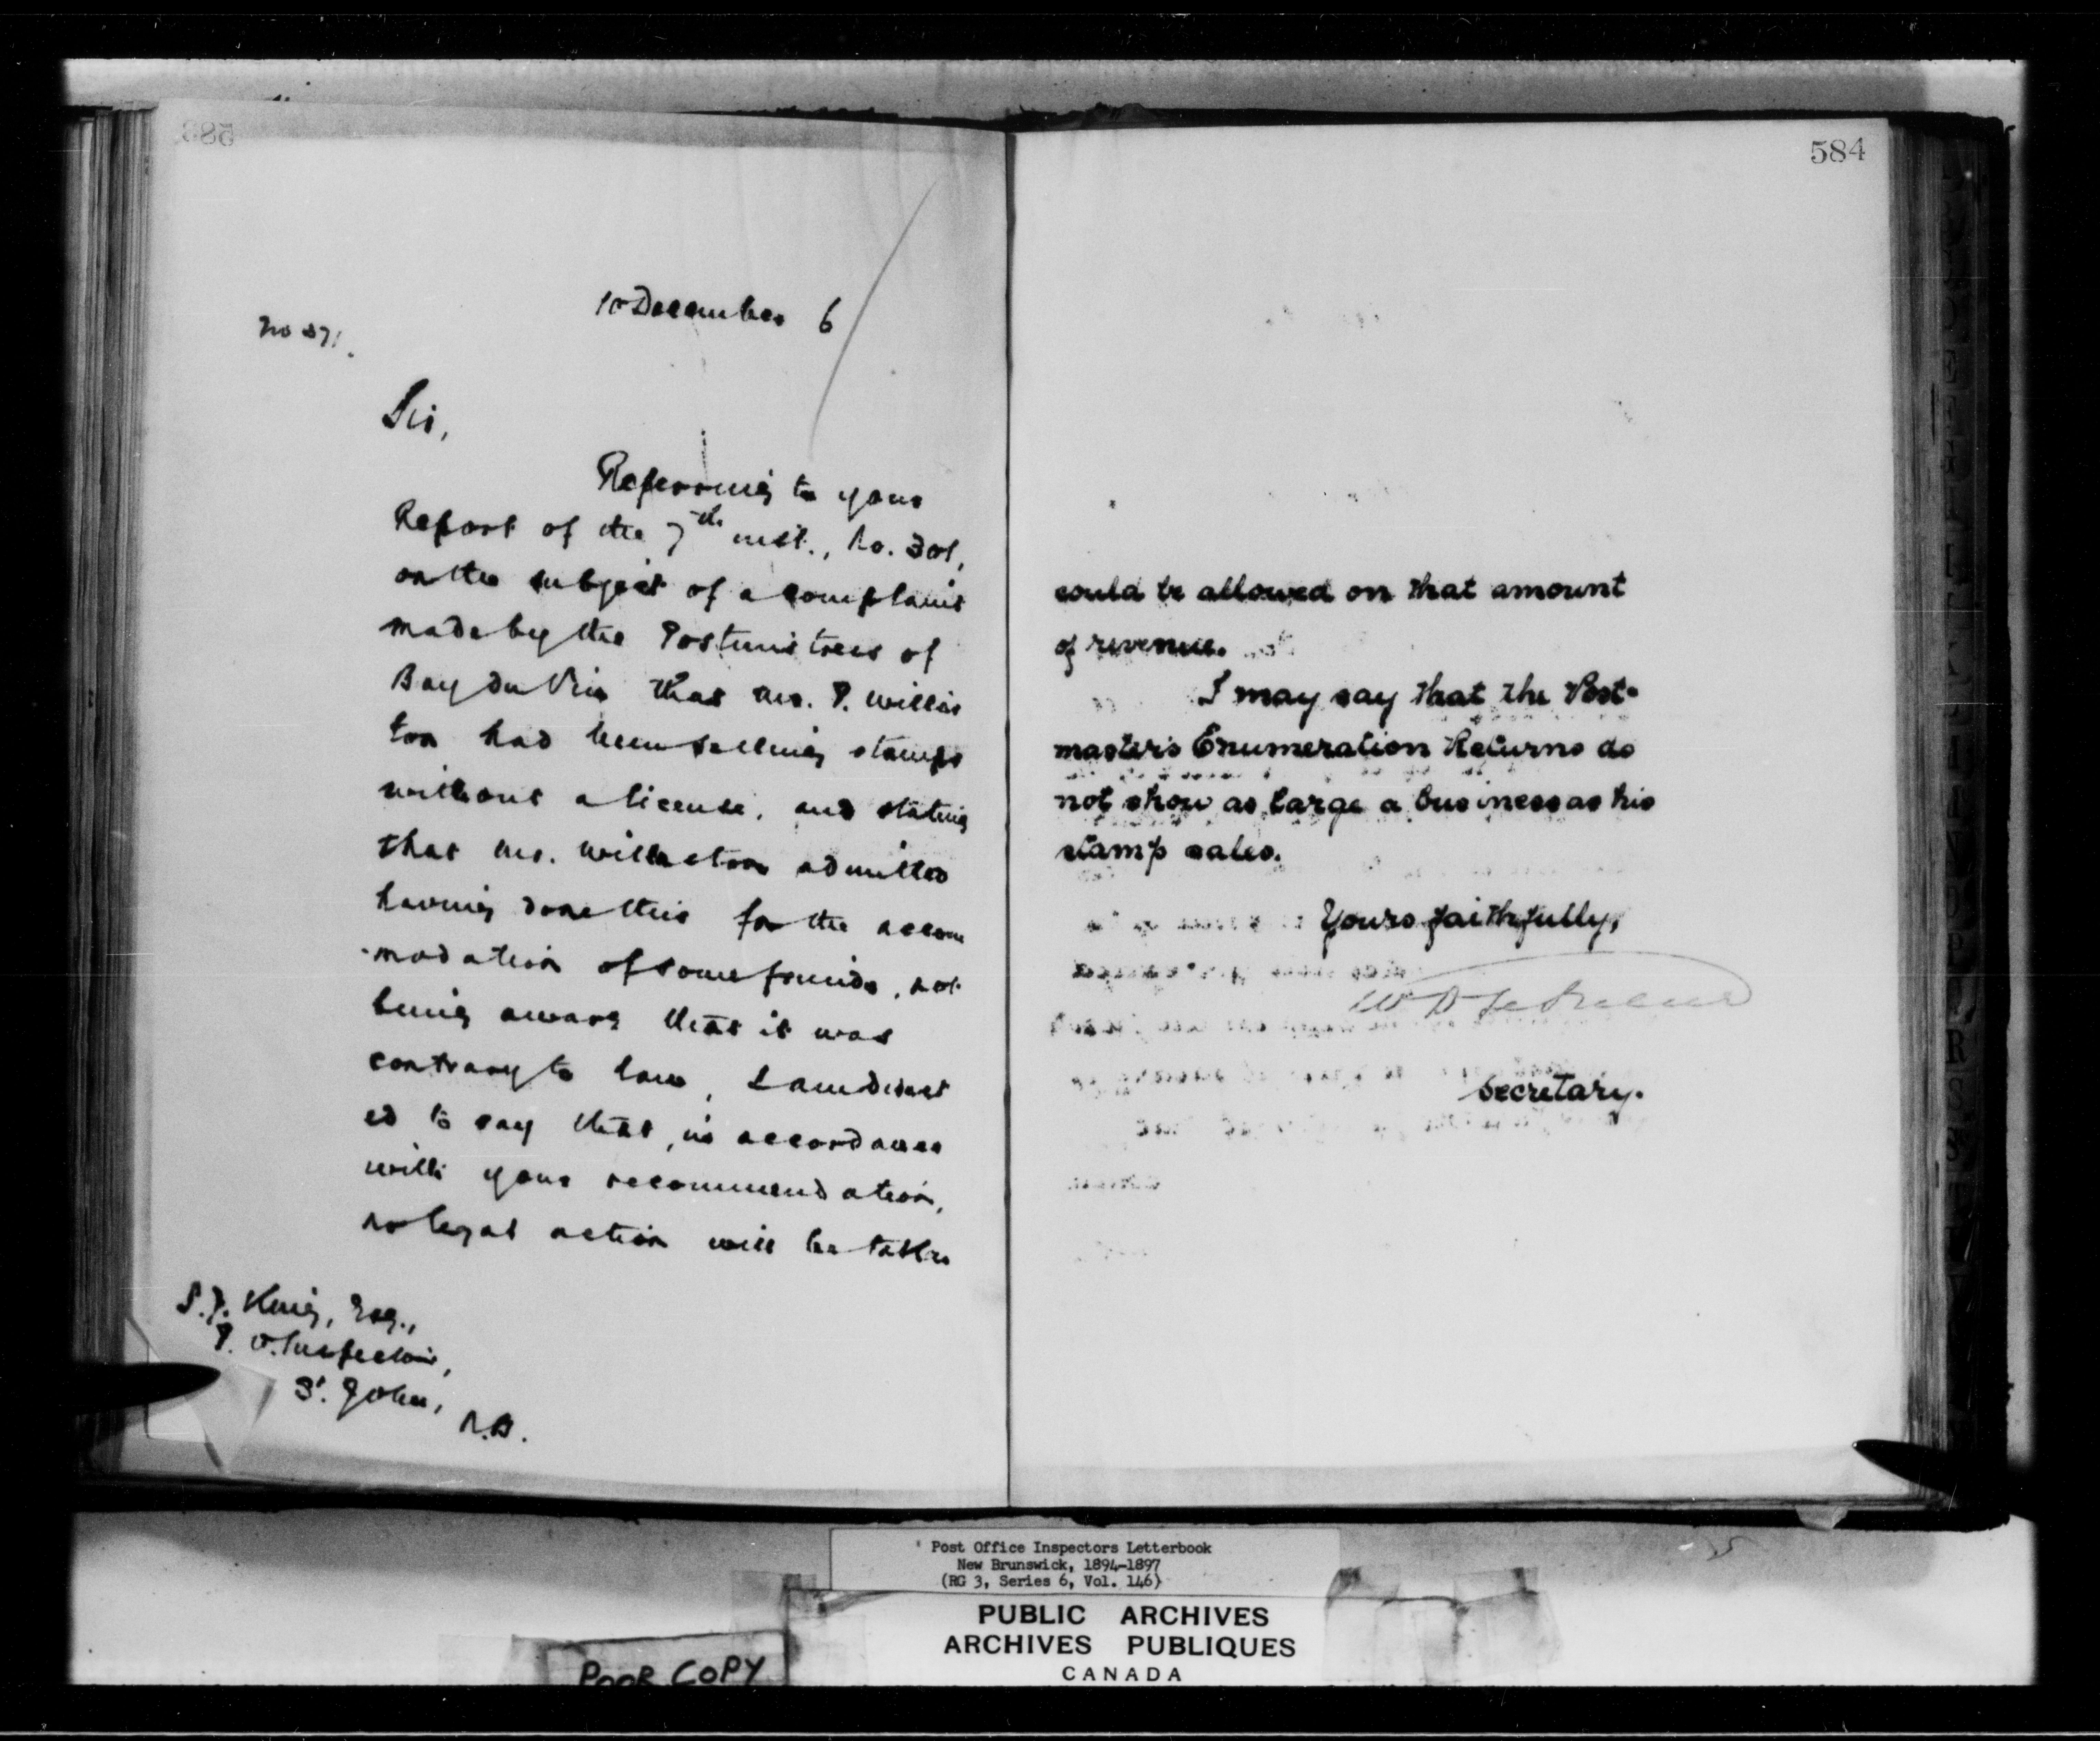 585
10 December 6
No 371.
Sir,
Referring to your
Report of the 7th inst., No. 301,
on the subject of a complaint
made by the Postmistress of
Bay du Vin that Mr. P. Willis
ton had been selling stamps
without a license, and stating
that Mr. Williston admitted
having done this for the accom
-modation of some friends, not
being aware that it was
contrary to law, I am direct
ed to say that, in accordance
with your recommendation,
no legal action will be taken
S.J. King, Esq.,
P. O. Inspector,
St. John,
N.B.
584
could be allowed on that amount
of revenue.
I may say that the Post-
master's Enumeration Returns do
not show as large a business as his
stamp sales.
Yours faithfully,
Secretary.
Post Office Inspectors Letterbook
New Brunswick, 1894-1897
(RG 3, Series 6, Vol. 146)
PUBLIC ARCHIVES
ARCHIVES PUBLIQUES
CANADA
POOR COPY